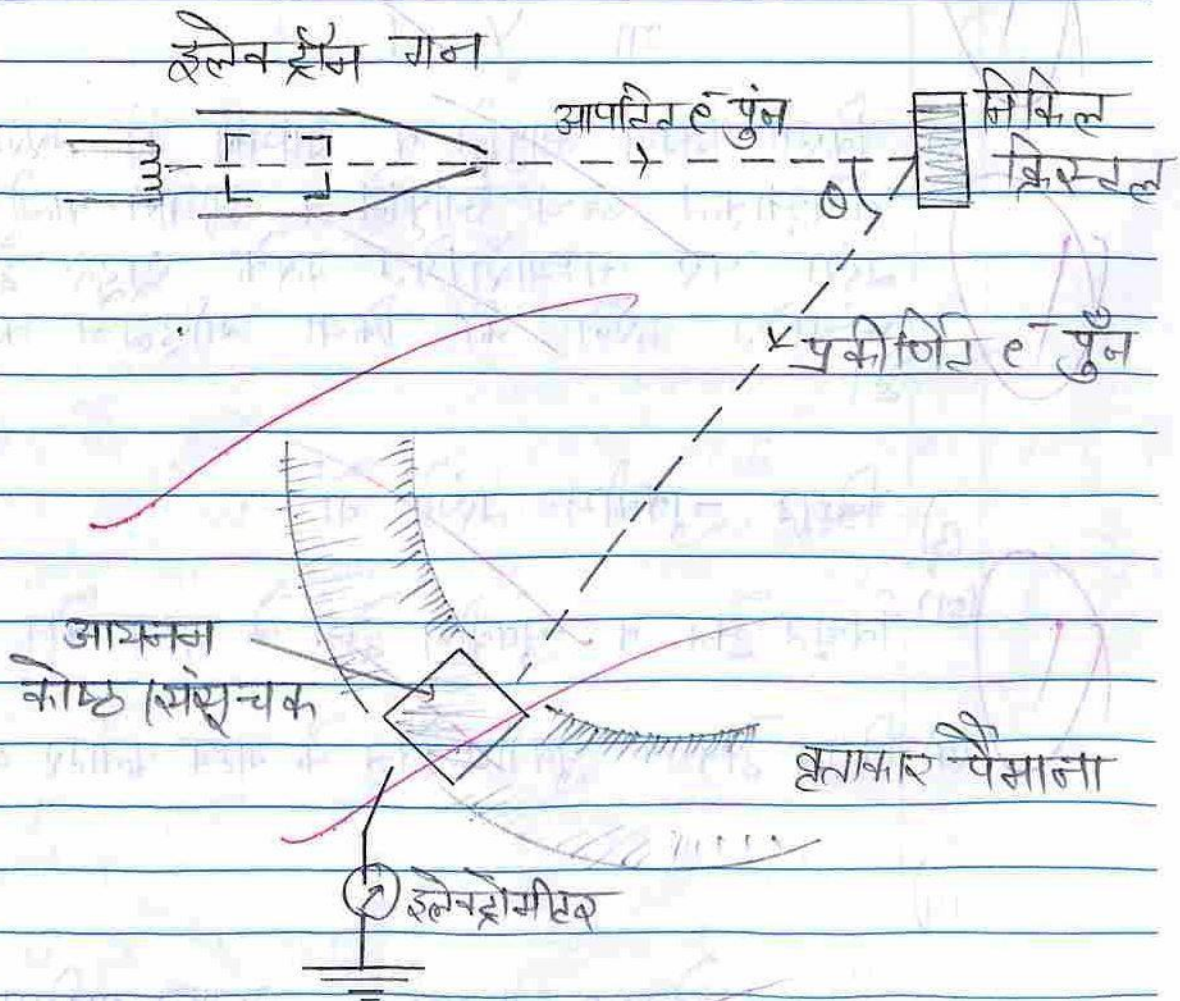 इलेक्ट्रॉन गन
आपतित e⁻ पुंज
निकिल
क्रिस्टल
θ
प्रकीर्णित e⁻ पुँज
आयनन
कोष्ठ/संसूचक
वृताकार पैमाना
इलेक्ट्रोमीटर